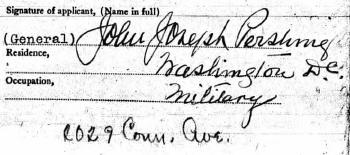 Signature of applicant, (Name in full)
(General) John Joseph Pershing
Residence,
Washington D.C.
Occupation,
Military
2029 Conn. Ave.